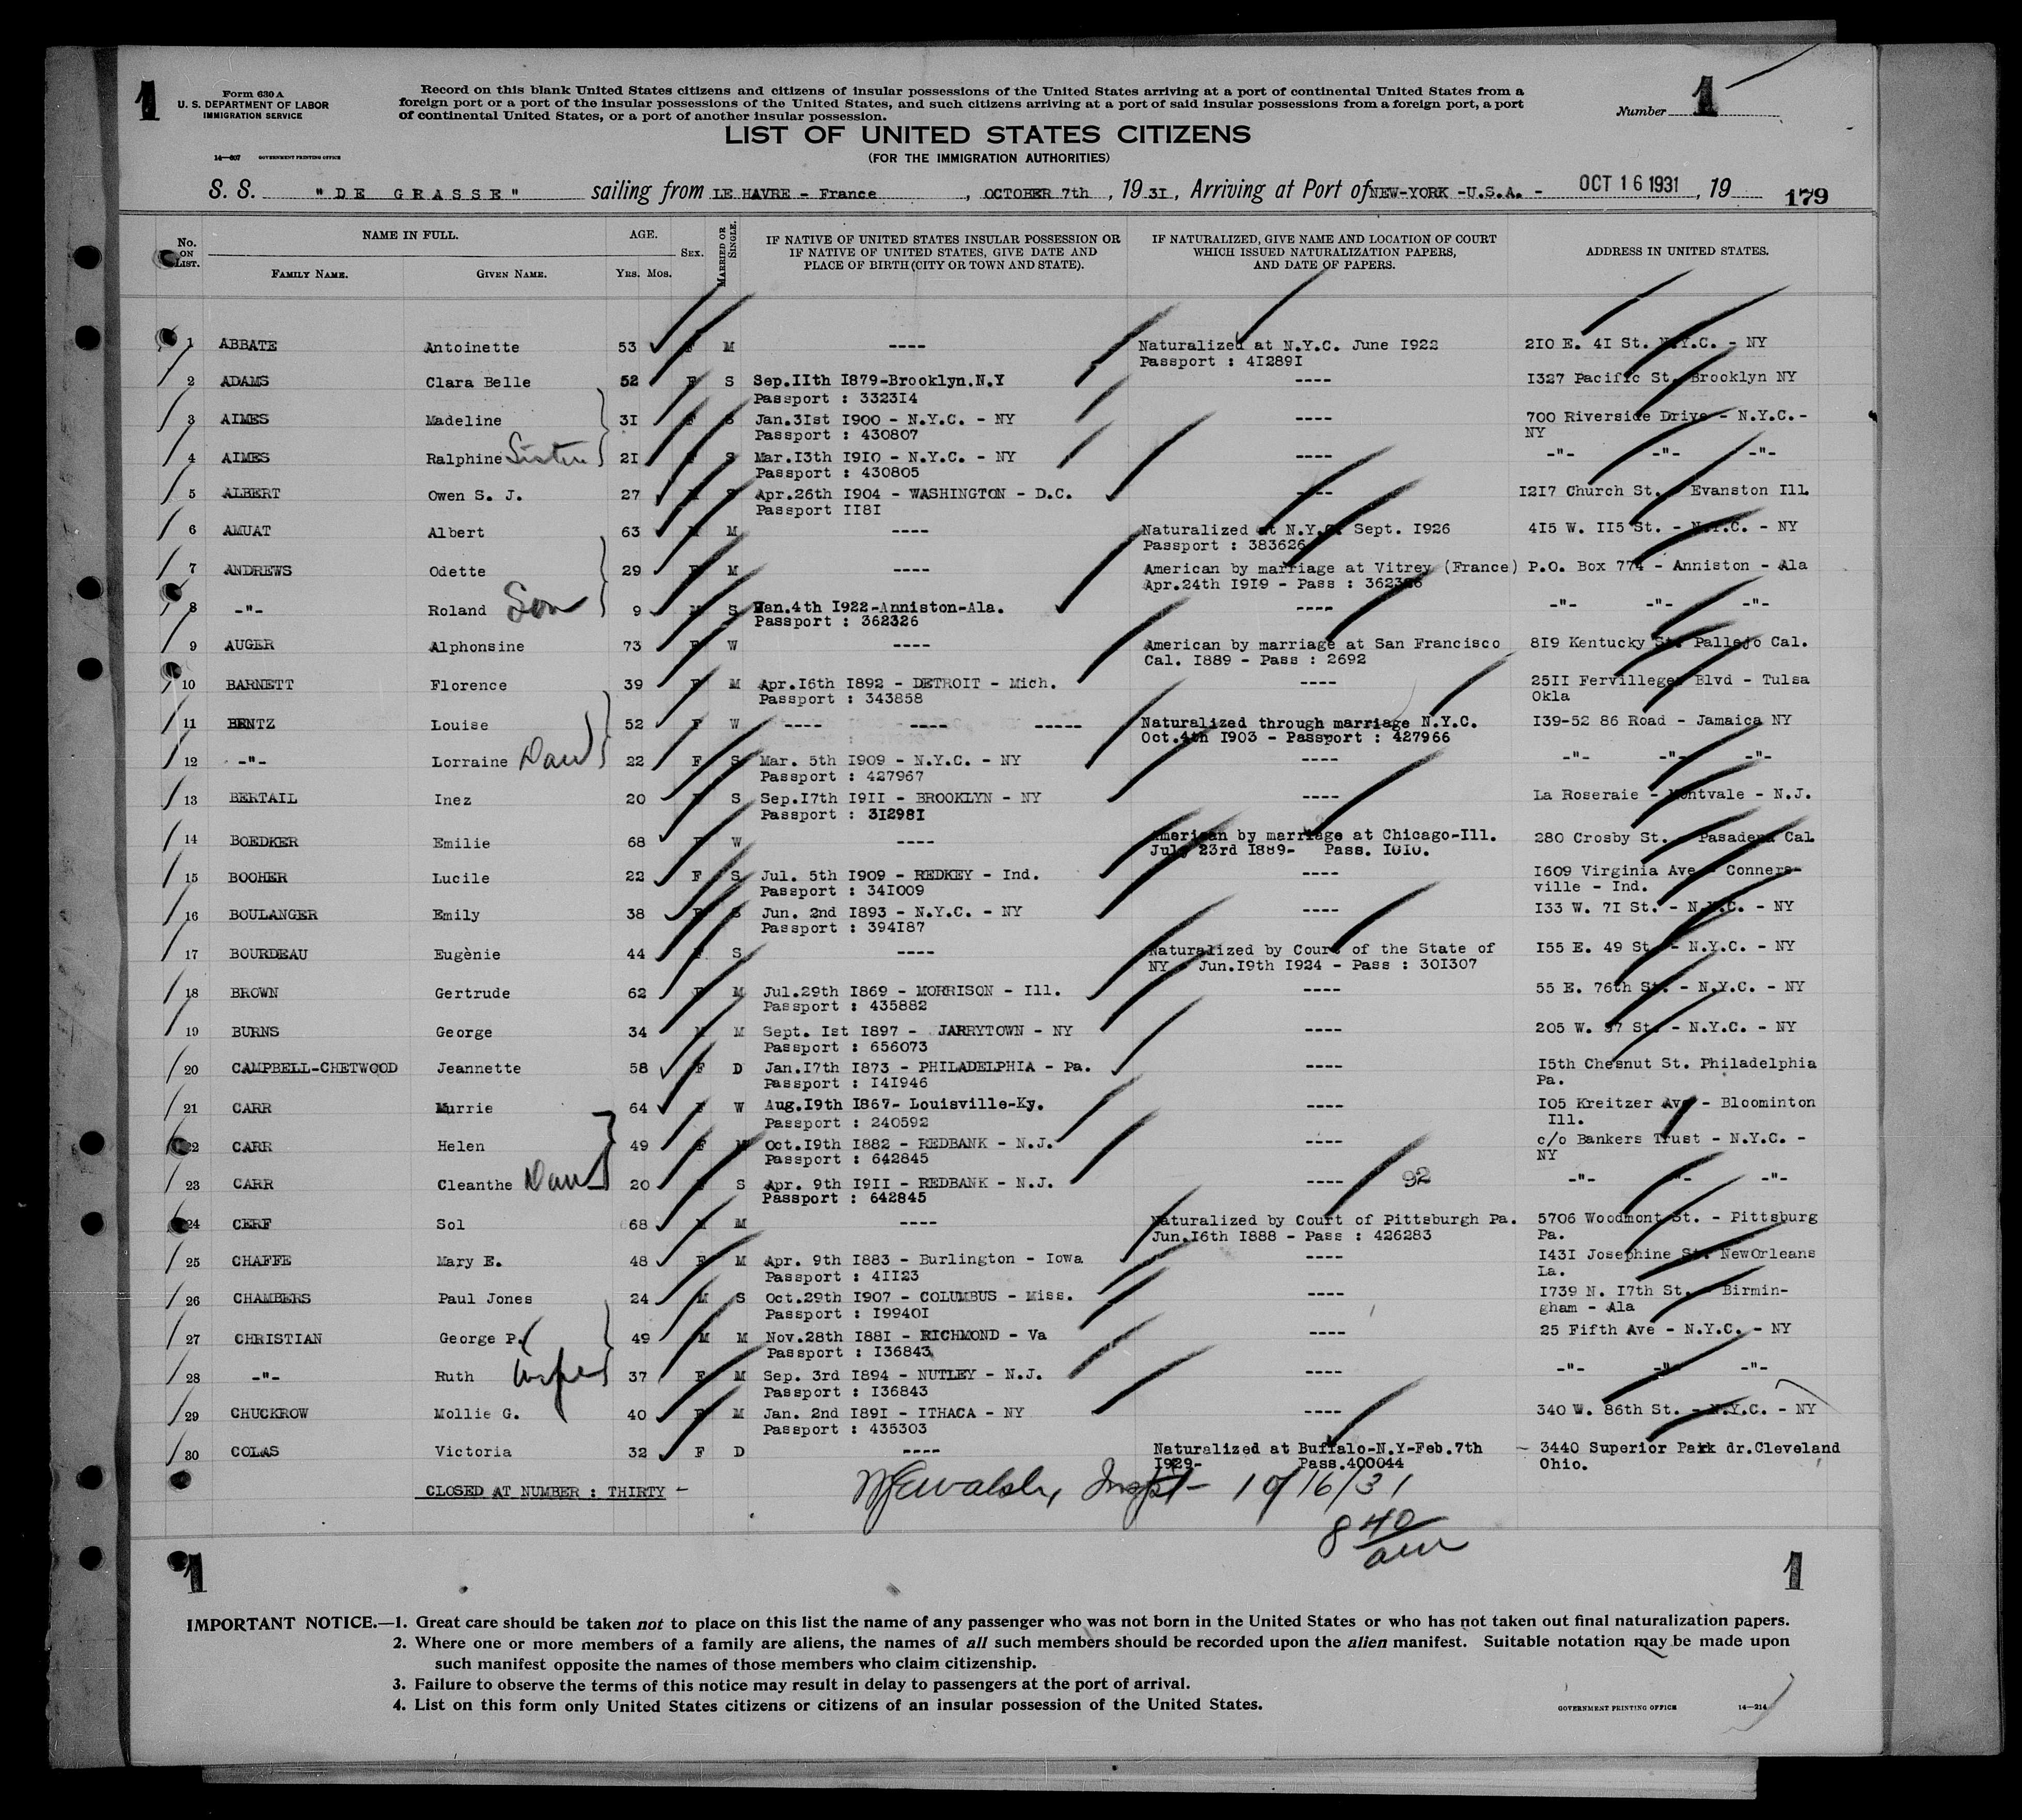 1
Form 630 A
U. S. DEPARTMENT OF LABOR
IMMIGRATION SERVICE
14—607 GOVERNMENT PRINTING OFFICE
Record on this blank United States citizens and citizens of insular possessions of the United States arriving at a port of continental United States from a
foreign port or a port of the insular possessions of the United States, and such citizens arriving at a port of said insular possessions from a foreign port, a port
of continental United States, or a port of another insular possession.
Number 1
LIST OF UNITED STATES CITIZENS
(FOR THE IMMIGRATION AUTHORITIES)
S. S. "DE GRASSE" sailing from LE HAVRE - France, OCTOBER 7th, 1931, Arriving at Port of NEW-YORK -U.S.A. - OCT 16 1931, 19 179
No. ON LIST. NAME IN FULL. FAMILY NAME. GIVEN NAME. AGE. YRS. MOS. SEX. MARRIED OR SINGLE. IF NATIVE OF UNITED STATES INSULAR POSSESSION OR IF NATIVE OF UNITED STATES, GIVE DATE AND PLACE OF BIRTH (CITY OR TOWN AND STATE). IF NATURALIZED, GIVE NAME AND LOCATION OF COURT WHICH ISSUED NATURALIZATION PAPERS, AND DATE OF PAPERS. ADDRESS IN UNITED STATES.
1 ABBATE Antoinette 53 F M ---- Naturalized at N.Y.C. June 1922 210 E. 41 St. N.Y.C. - NY
Passport : 412891
2 ADAMS Clara Belle 52 F S Sep.11th 1879-Brooklyn.N.Y ---- 1327 Pacific St. Brooklyn NY
Passport : 332314
3 AIMES Madeline 31 F S Jan.31st 1900 - N.Y.C. - NY ---- 700 Riverside Drive - N.Y.C.-
Passport : 430807 NY
4 AIMES Ralphine Sister 21 F S Mar.13th 1910 - N.Y.C. - NY ---- -"- -"- -"-
Passport : 430805
5 ALBERT Owen S. J. 27 M S Apr.26th 1904 - WASHINGTON - D.C. ---- 1217 Church St. - Evanston Ill.
Passport 1181
6 AMUAT Albert 63 M M ---- Naturalized at N.Y.C. Sept. 1926 415 W. 115 St. - N.Y.C. - NY
Passport : 383626
7 ANDREWS Odette 29 F M ---- American by marriage at Vitrey (France) P.O. Box 774 - Anniston - Ala
Apr.24th 1919 - Pass : 362326
8 -"- Roland Son 9 M S Jan.4th 1922-Anniston-Ala. ---- -"- -"- -"-
Passport : 362326
9 AUGER Alphonsine 73 F W ---- American by marriage at San Francisco 819 Kentucky St. Pallejo Cal.
Cal. 1889 - Pass : 2692
10 BARNETT Florence 39 F M Apr.16th 1892 - DETROIT - Mich. ---- 2511 Fervilleger Blvd - Tulsa
Passport : 343858 Okla
11 BENTZ Louise 52 F W ---- ---- ----- Naturalized through marriage N.Y.C. 139-52 86 Road - Jamaica NY
Oct.4th 1903 - Passport : 427966
12 -"- Lorraine Dau 22 F S Mar. 5th 1909 - N.Y.C. - NY ---- -"- -"- -"-
Passport : 427967
13 BERTAIL Inez 20 F S Sep.17th 1911 - BROOKLYN - NY ---- La Roseraie - Montvale - N.J.
Passport : 312981
14 BOEDKER Emilie 68 F W ---- American by marriage at Chicago-Ill. 280 Crosby St. - Pasadena Cal
July 23rd 1889- Pass. 1010.
15 BOOHER Lucile 22 F S Jul. 5th 1909 - REDKEY - Ind. ---- 1609 Virginia Ave - Conners-
Passport : 341009 ville - Ind.
16 BOULANGER Emily 38 F S Jun. 2nd 1893 - N.Y.C. - NY ---- 133 W. 71 St. - N.Y.C. - NY
Passport : 394187
17 BOURDEAU Eugènie 44 F S ---- Naturalized by Court of the State of 155 E. 49 St. - N.Y.C. - NY
NY - Jun.19th 1924 - Pass : 301307
18 BROWN Gertrude 62 F M Jul.29th 1869 - MORRISON - Ill. ---- 55 E. 76th St. - N.Y.C. - NY
Passport : 435882
19 BURNS George 34 M M Sept. 1st 1897 - JARRYTOWN - NY ---- 205 W. 57 St. - N.Y.C. - NY
Passport : 656073
20 CAMPBELL-CHETWOOD Jeannette 58 F D Jan.17th 1873 - PHILADELPHIA - Pa. ---- 15th Chesnut St. Philadelphia
Passport : 141946 Pa.
21 CARR Murrie 64 F W Aug.19th 1867- Louisville-Ky. ---- 105 Kreitzer Ave - Bloominton
Passport : 240592 Ill.
22 CARR Helen 49 F M Oct.19th 1882 - REDBANK - N.J. ---- c/o Bankers Trust - N.Y.C. -
Passport : 642845 NY
23 CARR Cleanthe Dau 20 F S Apr. 9th 1911 - REDBANK - N.J. ---- 92 -"- -"- -"-
Passport : 642845
24 CERF Sol 68 M M ---- Naturalized by Court of Pittsburgh Pa. 5706 Woodmont St. - Pittsburg
Jun.16th 1888 - Pass : 426283 Pa.
25 CHAFFE Mary E. 48 F M Apr. 9th 1883 - Burlington - Iowa ---- 1431 Josephine St. NewOrleans
Passport : 41123 La.
26 CHAMBERS Paul Jones 24 M S Oct.29th 1907 - COLUMBUS - Miss. ---- 1739 N. 17th St. - Birmin-
Passport : 199401 gham - Ala
27 CHRISTIAN George P. 49 M M Nov.28th 1881 - RICHMOND - Va ---- 25 Fifth Ave - N.Y.C. - NY
Passport : 136843
28 -"- Ruth wife 37 F M Sep. 3rd 1894 - NUTLEY - N.J. ---- -"- -"- -"-
Passport : 136843
29 CHUCKROW Mollie G. 40 F M Jan. 2nd 1891 - ITHACA - NY ---- 340 W. 86th St. - N.Y.C. - NY
Passport : 435303
30 COLAS Victoria 32 F D ---- Naturalized at Buffalo-N.Y-Feb.7th - 3440 Superior Park dr.Cleveland
1929- Pass.400044 Ohio.
CLOSED AT NUMBER : THIRTY -
Walsh, Inspt- 10/16/31
8 40 am
1 1
IMPORTANT NOTICE.—1. Great care should be taken not to place on this list the name of any passenger who was not born in the United States or who has not taken out final naturalization papers.
2. Where one or more members of a family are aliens, the names of all such members should be recorded upon the alien manifest. Suitable notation may be made upon
such manifest opposite the names of those members who claim citizenship.
3. Failure to observe the terms of this notice may result in delay to passengers at the port of arrival.
4. List on this form only United States citizens or citizens of an insular possession of the United States.
GOVERNMENT PRINTING OFFICE 14—214